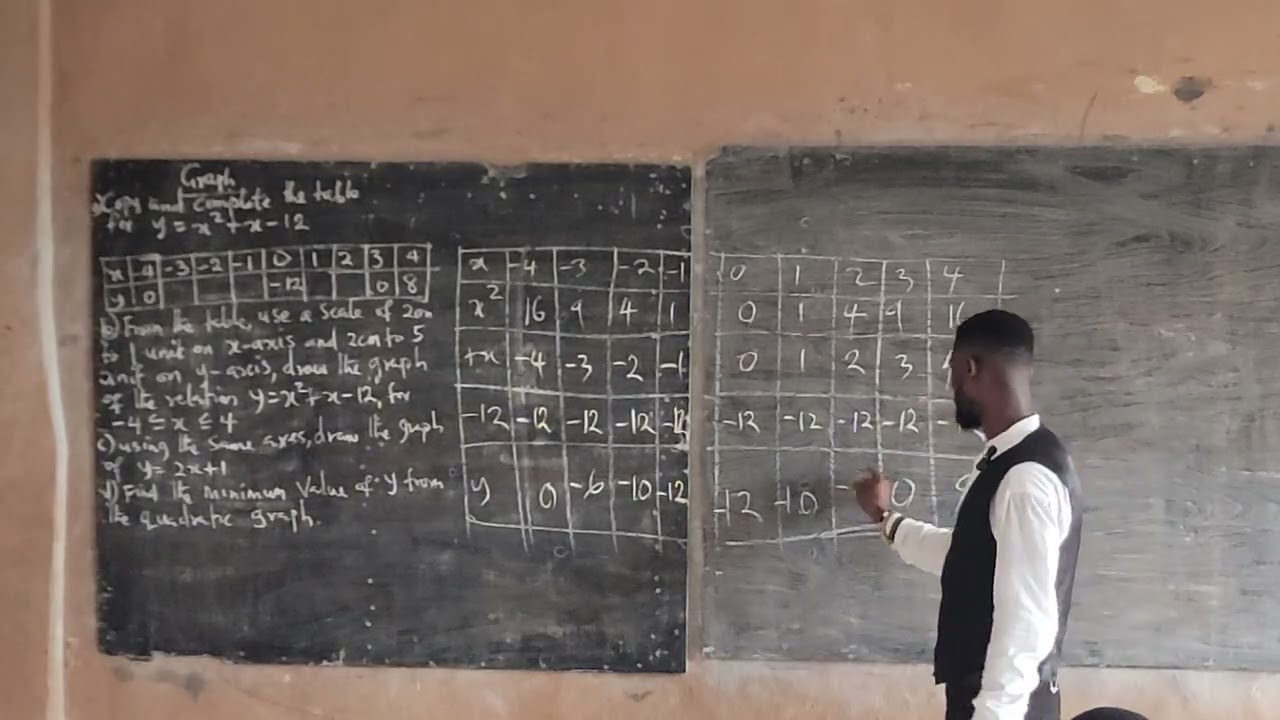 Graph
a) Copy and complete the table
for y = x² + x - 12
x -4 -3 -2 -1 0 1 2 3 4
y 0 -12 0 8
b) From the table, use a scale of 2cm
to 1 unit on x-axis and 2cm to 5
unit on y-axis, draw the graph
of the relation y = x² + x - 12, for
-4 ≤ x ≤ 4
c) using the same axes, draw the graph
of y = 2x+1
d) Find the minimum value of y from
the quadratic graph.
x -4 -3 -2 -1 0 1 2 3 4
x² 16 9 4 1 0 1 4 9 16
+x -4 -3 -2 -1 0 1 2 3
-12 -12 -12 -12 -12 -12 -12 -12 -12
y 0 -6 -10 -12 -12 -10 0